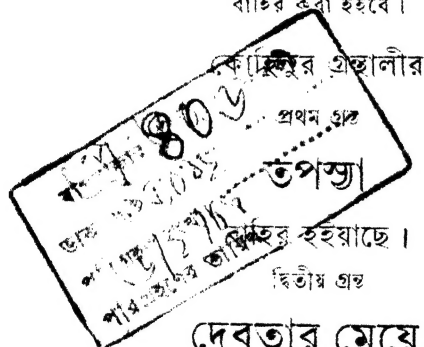 বাহির করা হইবে।
কোহিনুর গ্রন্থালীর
প্রথম গ্রন্থ
তপস্যা
বাহির হইয়াছে।
দ্বিতীয় গ্রন্থ
দেবতার মেয়ে
৪০৬
পরিগ্রহণের তারিখ